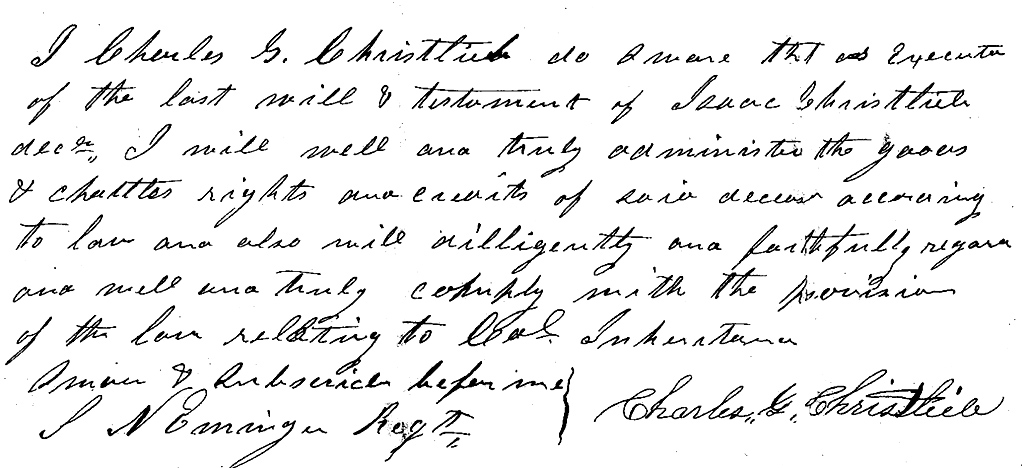 I Charles G. Christlieb do swear tht as Executor
of the last will & testament of Isaac Christlieb
decd, I will well and truly administer the goods
& chattles rights and credits of said deceas according
to law and also will dilligently and faithfully regard
and well and truly comply with the provision
of the law relating to Col. Inheritance
Sworn & Subscribed before me
J N Eminger Regtr
Charles G. Christlieb